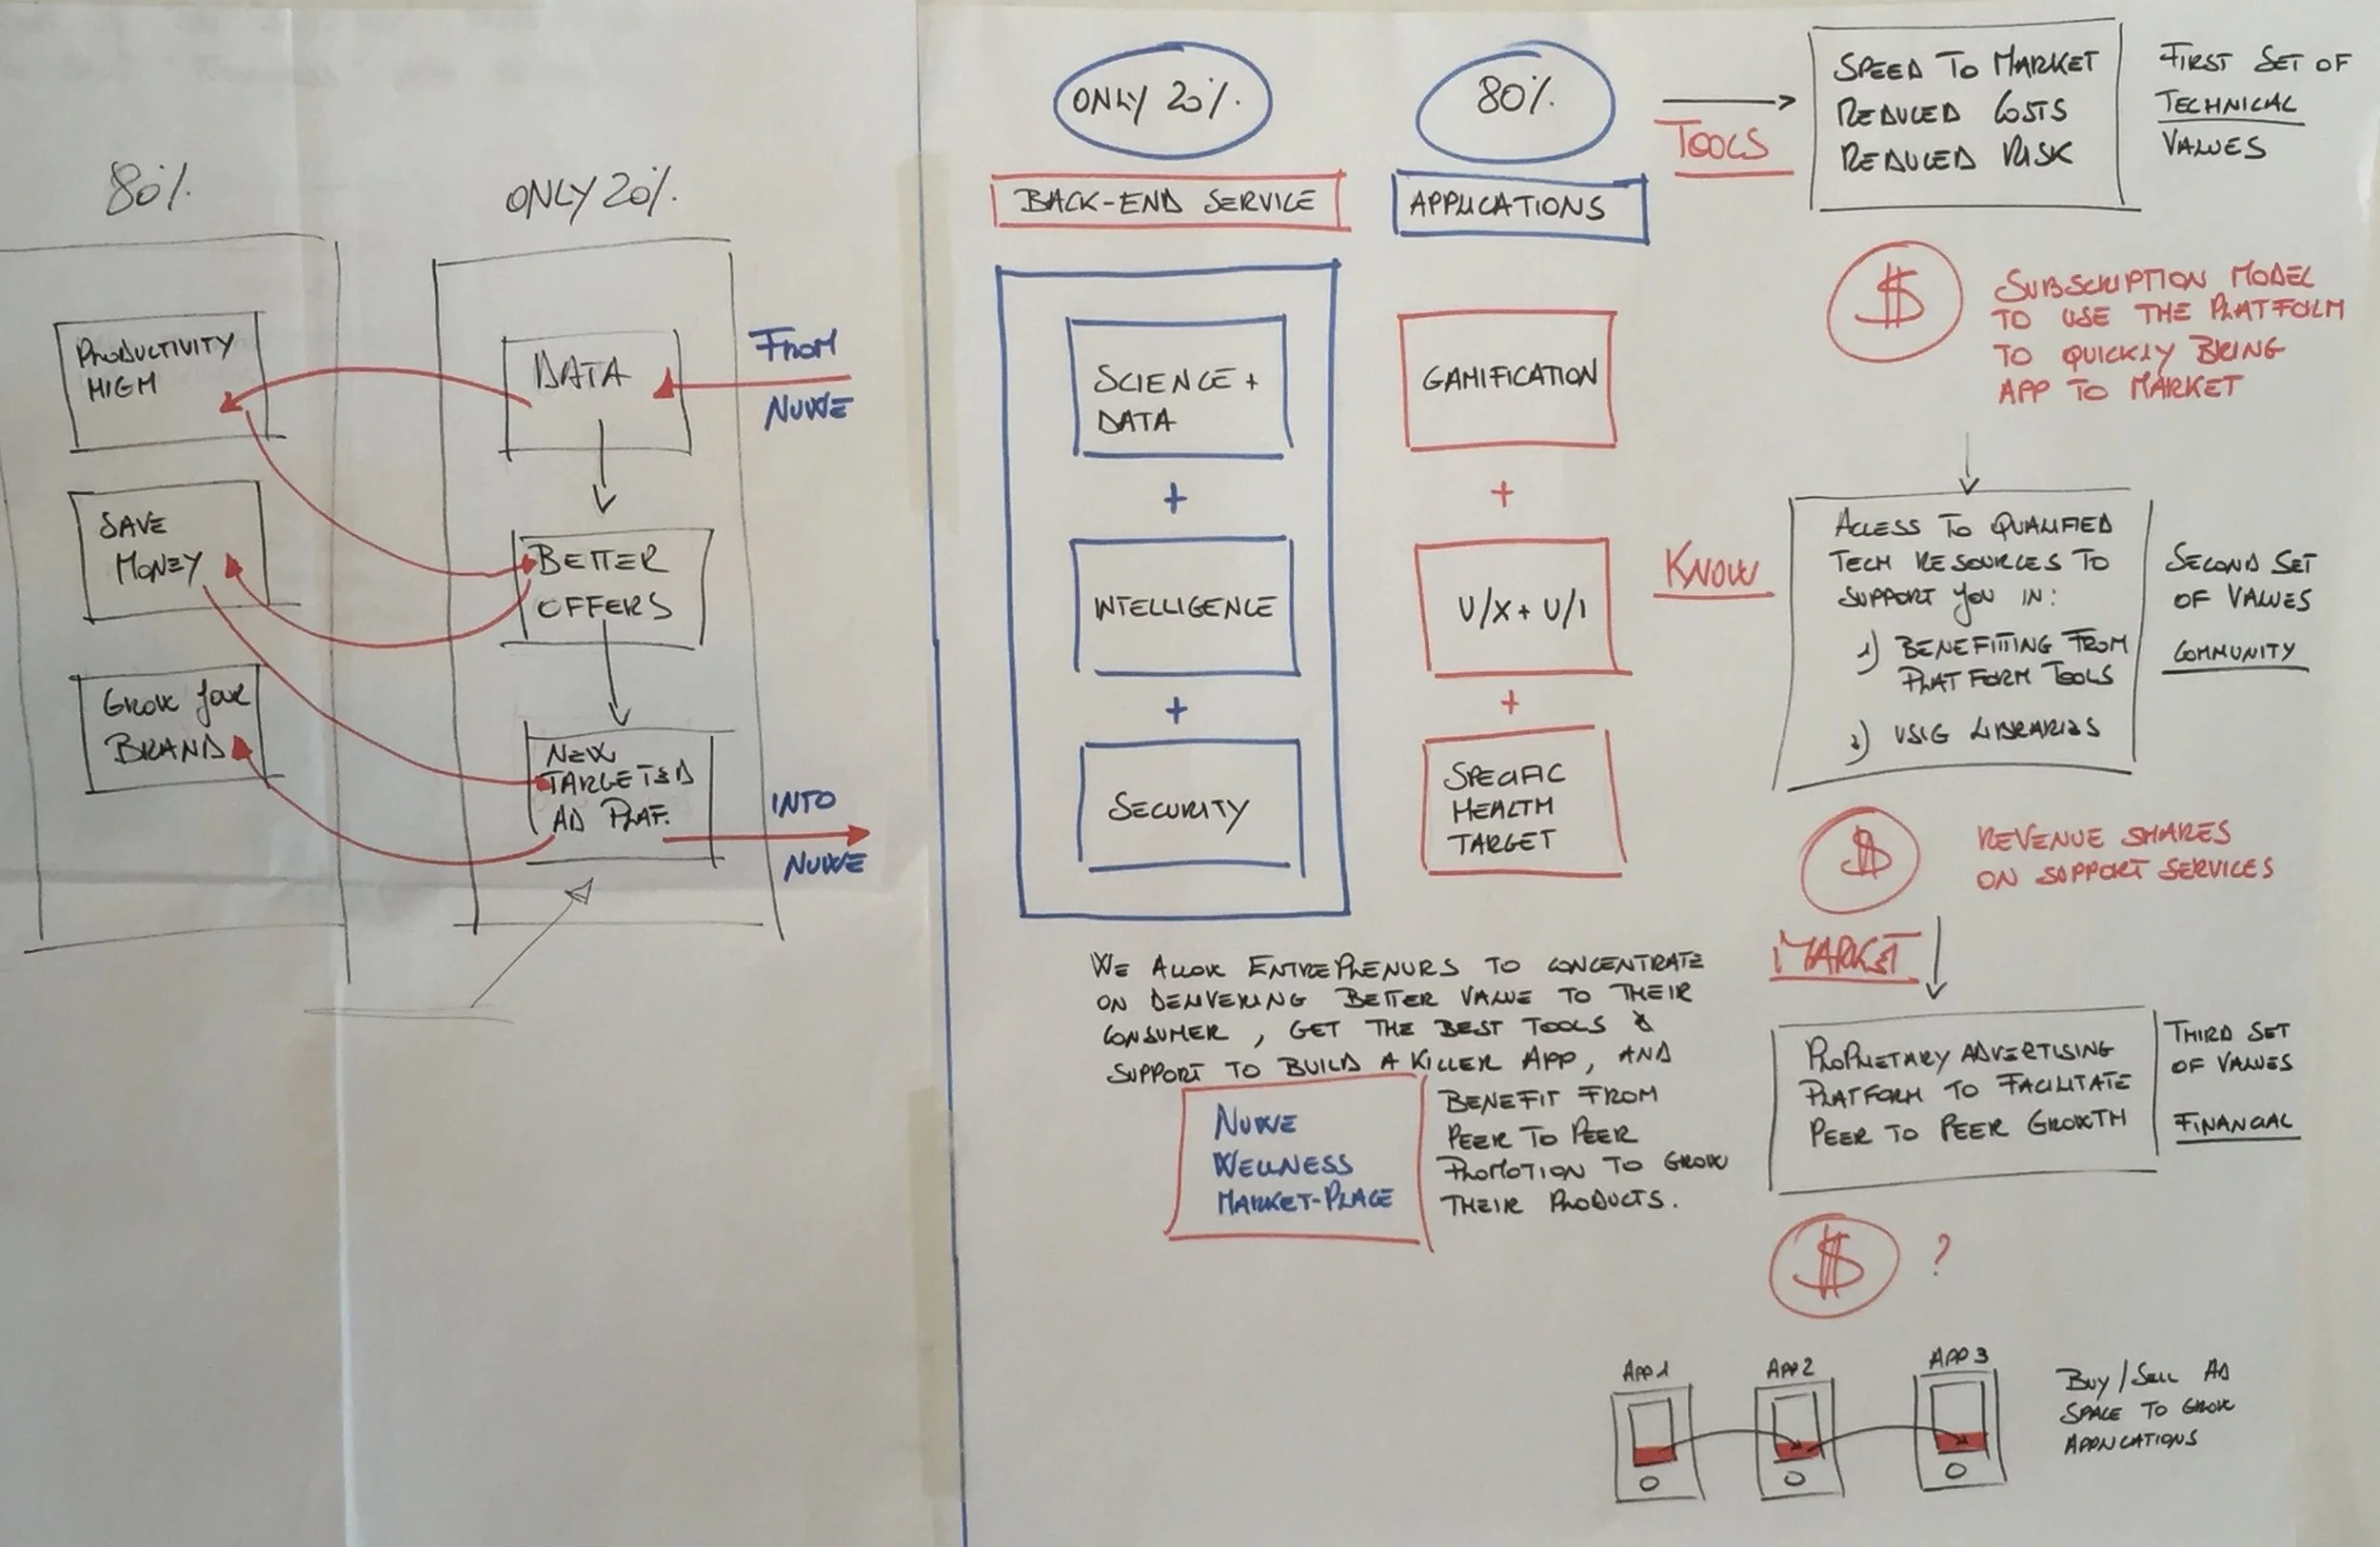 80%.
ONLY 20%.
PRODUCTIVITY
HIGH
SAVE
MONEY
GROW YOUR
BRAND
DATA
BETTER
OFFERS
NEW
TARGETED
AD PLAT.
FROM
NUWE
INTO
NUWE
ONLY 20%.
80%.
BACK-END SERVICE
APPLICATIONS
SCIENCE +
DATA
+
INTELLIGENCE
+
SECURITY
GAMIFICATION
+
U/X + U/I
+
SPECIFIC
HEALTH
TARGET
WE ALLOW ENTREPRENURS TO CONCENTRATE
ON DELIVERING BETTER VALUE TO THEIR
CONSUMER, GET THE BEST TOOLS &
SUPPORT TO BUILD A KILLER APP, AND
BENEFIT FROM
PEER TO PEER
PROMOTION TO GROW
THEIR PRODUCTS.
NUWE
WELLNESS
MARKET-PLACE
TOOLS
SPEED TO MARKET
REDUCED COSTS
REDUCED RISK
FIRST SET OF
TECHNICAL
VALUES
$
SUBSCRIPTION MODEL
TO USE THE PLATFORM
TO QUICKLY BRING
APP TO MARKET
KNOW
ACCESS TO QUALIFIED
TECH RESOURCES TO
SUPPORT YOU IN:
1) BENEFITTING FROM
PLATFORM TOOLS
2) USIG LIBRARIES
SECOND SET
OF VALUES
COMMUNITY
$
REVENUE SHARES
ON SUPPORT SERVICES
MARKET
PROPRIETARY ADVERTISING
PLATFORM TO FACILITATE
PEER TO PEER GROWTH
THIRD SET
OF VALUES
FINANCIAL
$ ?
APP 1
APP 2
APP 3
BUY/SELL AD
SPACE TO GROW
APPLICATIONS